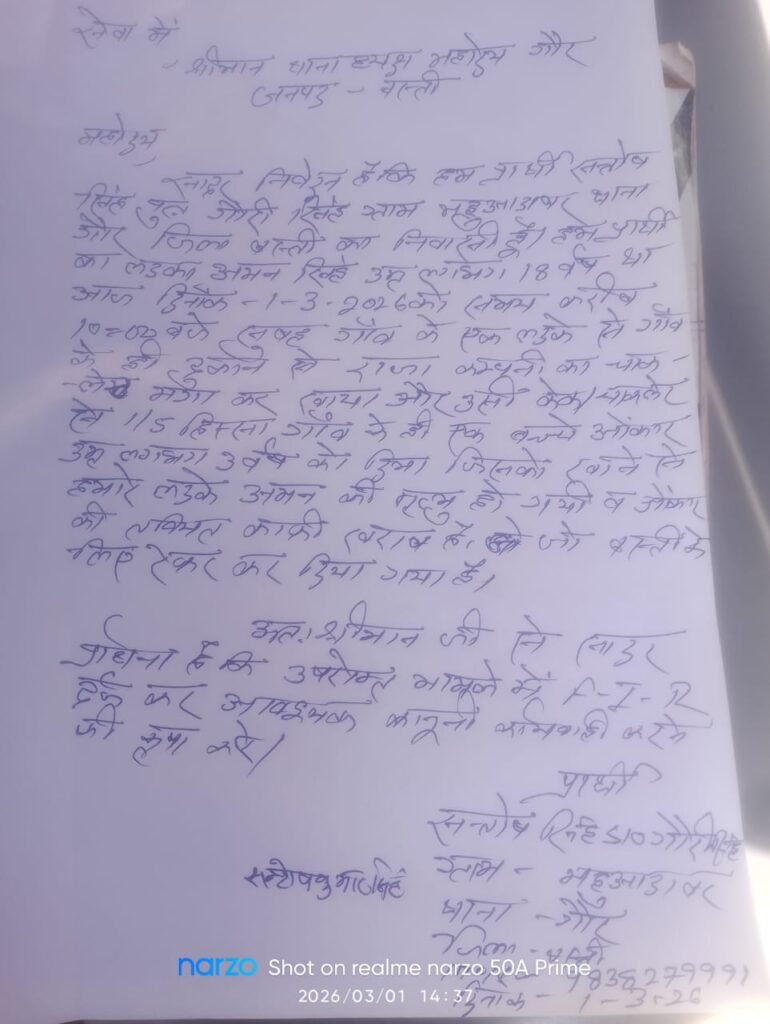 सेवा में
श्रीमान थानाध्यक्ष महोदय गौर
जनपद - बस्ती
महोदय,
सादर निवेदन है कि हम प्रार्थी सन्तोष
सिंह पुत्र गौरी सिंह ग्राम महुआडाबर थाना
गौर जिला बस्ती का निवासी हूँ। हम प्रार्थी
का लडका अमन सिंह उम्र लगभग 18 वर्ष था
आज दिनाँक - 1-3-2026 को समय करीब
10=00 बजे सुबह गाँव के एक लडके से गाँव
के ही दुकान से राजा कम्पनी का चाक-
-लेट मंगा कर खाया और उसी चाकलेट
से 1/5 हिस्सा गाँव के ही एक बच्चे ओंकार
उम्र लगभग 3 वर्ष को दिया जिसको खाने से
हमारे लडके अमन की मृत्यु हो गयी व ओंकार
की तबियत काफी खराब है, जो बस्ती के
लिए रेफर कर दिया गया है।
अतः श्रीमान जी से सादर
प्रार्थना है कि उपरोक्त मामले में F-I-R
दर्ज कर आवश्यक कानूनी कार्यवाही करने
की कृपा करें।
प्रार्थी
सन्तोष सिंह S/O गौरी सिंह
सन्तोष कुमार सिंह
ग्राम - महुआडाबर
थाना - गौर
जिला - बस्ती
9838279991
दिनाँक - 1-3-26
narzo Shot on realme narzo 50A Prime
2026/03/01 14:37